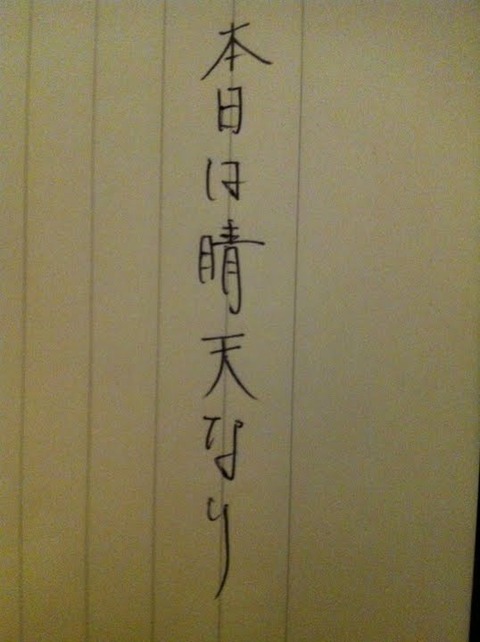 本日は晴天なり